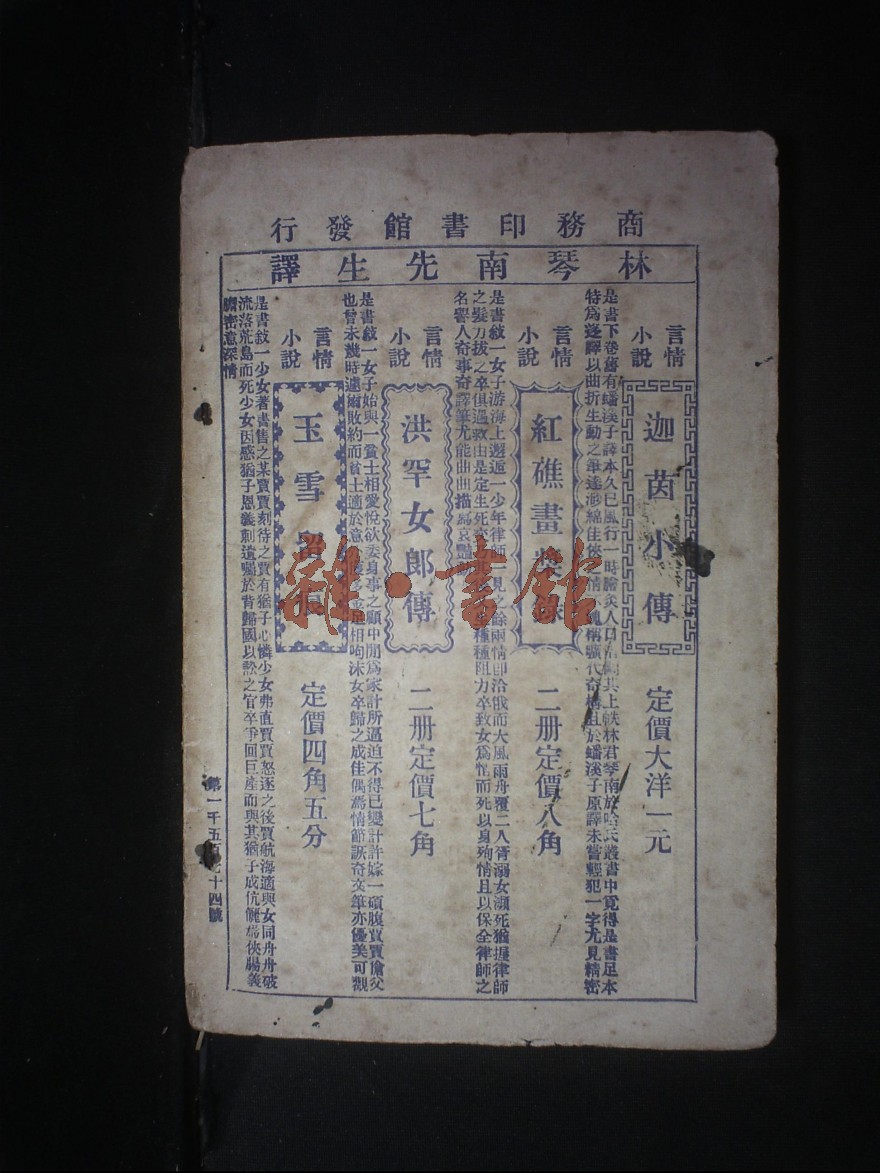 商務印書館發行
林琴南先生譯
言情
小說
迦茵小傳
定價大洋一元
是書下卷舊有蟠溪子譯本久已風行一時膾炙人口其上帙林君琴南於哈氏叢書中覓得是書足本
特爲迻譯以曲折生動之筆達渺綿佳俠之情構曠代奇構且於蟠溪子原譯未嘗輕犯一字尤見精密
言情
小說
紅礁畫槳錄
二册定價八角
是書敘一女子游海上邂逅一少年律師一見之餘兩情即洽俄而大風雨舟覆二人胥溺女瀕死猶握律師
之髮力拔之卒俱遇救由是定生死種種阻力卒致女爲情而死以身殉情且以保全律師之
名譽人奇事奇譯筆尤能曲曲描寫哀艷
言情
小說
洪罕女郎傳
二册定價七角
是書敘一女子始與一貧士相愛悅欲委身事之顧中間爲家計所逼迫不得已變計許嫁一碩腹賈賈傖父
也曾未幾時遽爾敗約而貧士適於意相呴沫女卒歸之成佳偶焉情節詼奇文筆亦優美可觀
言情
小說
玉雪留痕
定價四角五分
是書敘一少女著書售之某賈賈刻待之賈有猶子心憐少女弗直賈賈怒逐之後賈航海適與女同舟舟破
流落荒島而死少女因感猶子恩義刺遺囑於背歸國以訟之官卒爭回巨產而與其猶子成伉儷焉俠腸義
膽密意深情
第一千五百十四號
雜·書館